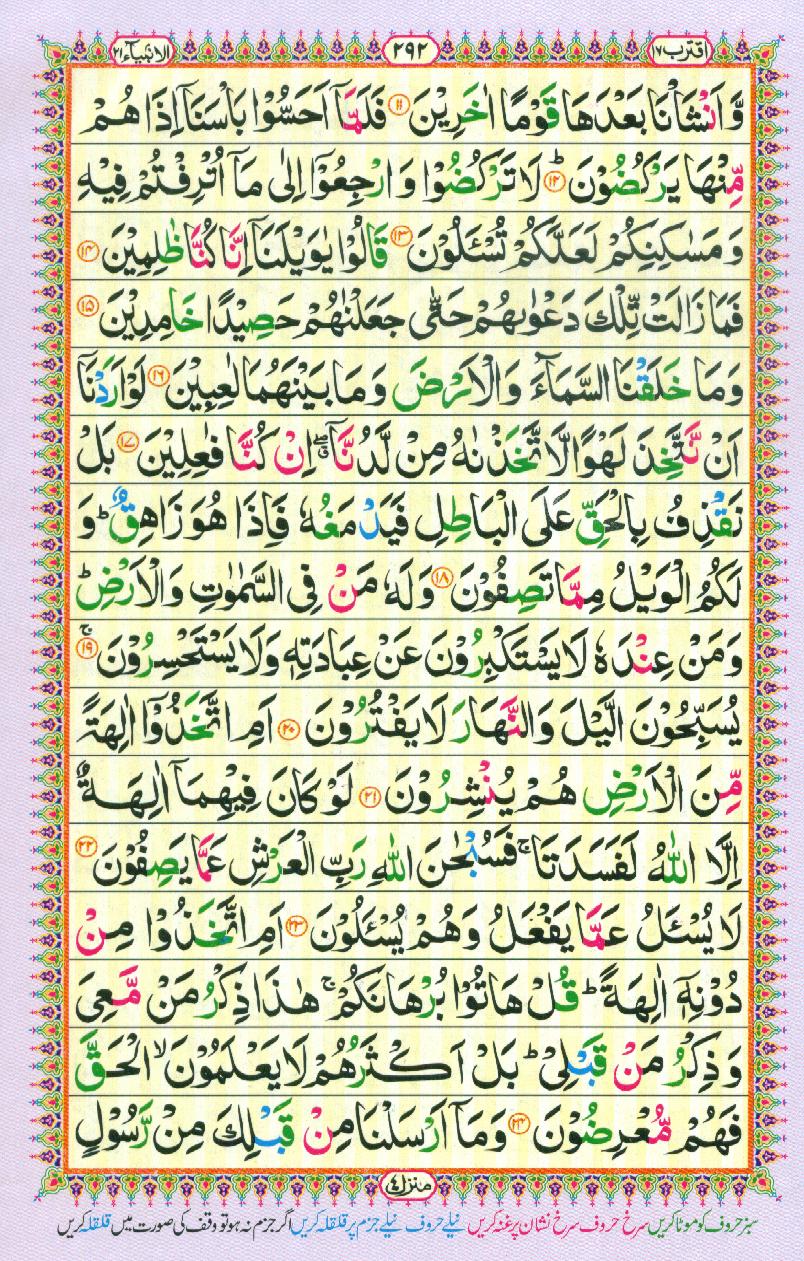 اقترب ١٧ ٢٩٢ الانبیآء ٢١
وَّاَنْشَاْنَا بَعْدَهَا قَوْمًا اٰخَرِیْنَ ۝١١ فَلَمَّاۤ اَحَسُّوْا بَاْسَنَاۤ اِذَا هُمْ
مِّنْهَا یَرْكُضُوْنَ ؕ۝١٢ لَا تَرْكُضُوْا وَ ارْجِعُوْۤا اِلٰى مَاۤ اُتْرِفْتُمْ فِیْهِ
وَ مَسٰكِنِكُمْ لَعَلَّكُمْ تُسْـَٔلُوْنَ ۝١٣ قَالُوْا یٰوَیْلَنَاۤ اِنَّا كُنَّا ظٰلِمِیْنَ ۝١٤
فَمَا زَالَتْ تِّلْكَ دَعْوٰىهُمْ حَتّٰى جَعَلْنٰهُمْ حَصِیْدًا خٰمِدِیْنَ ۝١٥
وَ مَا خَلَقْنَا السَّمَآءَ وَ الْاَرْضَ وَ مَا بَیْنَهُمَا لٰعِبِیْنَ ۝١٦ لَوْ اَرَدْنَاۤ
اَنْ نَّتَّخِذَ لَهْوًا لَّاتَّخَذْنٰهُ مِنْ لَّدُنَّاۤ ۖۗ اِنْ كُنَّا فٰعِلِیْنَ ۝١٧ بَلْ
نَقْذِفُ بِالْحَقِّ عَلَى الْبَاطِلِ فَیَدْمَغُهٗ فَاِذَا هُوَ زَاهِقٌ ؕ وَ
لَكُمُ الْوَیْلُ مِمَّا تَصِفُوْنَ ۝١٨ وَ لَهٗ مَنْ فِی السَّمٰوٰتِ وَ الْاَرْضِ ؕ
وَ مَنْ عِنْدَهٗ لَا یَسْتَكْبِرُوْنَ عَنْ عِبَادَتِهٖ وَ لَا یَسْتَحْسِرُوْنَ ۚ۝١٩
یُسَبِّحُوْنَ الَّیْلَ وَ النَّهَارَ لَا یَفْتُرُوْنَ ۝٢٠ اَمِ اتَّخَذُوْۤا اٰلِهَةً
مِّنَ الْاَرْضِ هُمْ یُنْشِرُوْنَ ۝٢١ لَوْ كَانَ فِیْهِمَاۤ اٰلِهَةٌ
اِلَّا اللّٰهُ لَفَسَدَتَا ۚ فَسُبْحٰنَ اللّٰهِ رَبِّ الْعَرْشِ عَمَّا یَصِفُوْنَ ۝٢٢
لَا یُسْـَٔلُ عَمَّا یَفْعَلُ وَ هُمْ یُسْـَٔلُوْنَ ۝٢٣ اَمِ اتَّخَذُوْا مِنْ
دُوْنِهٖۤ اٰلِهَةً ؕ قُلْ هَاتُوْا بُرْهَانَكُمْ ۚ هٰذَا ذِكْرُ مَنْ مَّعِیَ
وَ ذِكْرُ مَنْ قَبْلِیْ ؕ بَلْ اَكْثَرُهُمْ لَا یَعْلَمُوْنَ ۙ الْحَقَّ
فَهُمْ مُّعْرِضُوْنَ ۝٢٤ وَ مَاۤ اَرْسَلْنَا مِنْ قَبْلِكَ مِنْ رَّسُوْلٍ
منزل ٤
سبز حروف کو موٹا کریں سرخ حروف سرخ نشان پر غنہ کریں نیلے حروف نیلے جزم پر قلقلہ کریں اگر جزم نہ ہو تو وقف کی صورت میں قلقلہ کریں